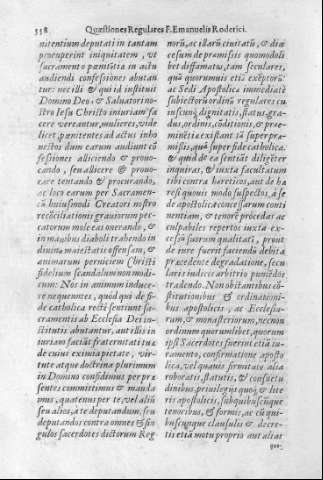 338 Quæstiones Regulares F. Emanuelis Roderici.
nitentium deputati in tantam
proruperint iniquitatem, vt
sacramento pœnitentia in actu
audiendi confessiones abutan
tur: nec illi & qui id instituit
Domino Deo, & Saluatori no-
stro Iesu Christo iniuriam fa
cere vereantur, mulieres, vide
licet pœnitentes ad actus inho
nestos dum earum audiunt cõ
fessiones alliciendo & prouo-
cando, seu allicere & prouo-
care tentando & procurando,
ac loco earum per Sacramen-
tũ huiusmodi Creatori nostro
recõciliationis grauiorum pec-
catorum mole eas onerando, &
in manibus diaboli trabendo in
diuinæ maiestatis offensam, &
animarum perniciem Christi
fidelium scandalum non modi-
cum: Nos in animum induce-
re nequeuntes, quòd qui de fi-
de catholica rectè sentiunt Sa-
cramentis ab Ecclesia Dei in-
stitutis abutantur, aut illis in
iuriam faciãt fraternitati tuæ
de cuius eximia pietate, vir-
tute atque doctrina plurimum
in Domino confidimus per præ
sentes committimus & manda
mus, quatenus per te, vel aliũ
seu alios, à te deputandum, seu
deputandos contra omnes & sin
gulos sacerdotes dictorum Reg-
norũ, ac illarũ ciuitatũ, & diœ
cesum de præmissis quomodoli
bet diffamatos, tam seculares,
quã quorumuis etiã exẽptorũ
ac Sedi Apostolica immediatè
subiectorũ ordinũ regulares cu
iuscunq; dignitatis, status, gra-
dus, ordinis, cõditionis, & præe-
minẽtia existant tã super præ-
missis, quã super fide catholica.
& quid de ea sentiãt diligẽter
inquiras, & iuxta facultatum
tibi contra hareticos, aut de ha
resi quouis modo suspectos, à se
de apostolica concessarum conti
nentiam, & tenorẽ procedas ac
culpabiles repertos iuxta ex-
cessũ suorum qualitatẽ, prout
de iure fuerit faciendũ debita
præcedente degradatione, secu
laris iudicis arbitrio puniẽdos
tradendo. Non obstantibus cõ-
stitutionibus & ordinationi-
bus apostolicis, ac Ecclesia-
rum, & monasteriorum, necnon
ordinum quorumlibet, quorum
ipsi Sacerdotes fuerint etiã iu-
ramento, confirmatione aposto
lica, vel quauis firmitate alia
roboratis, statutis, & consuetu
dinibus, priuilegijs quoq;, & lite
ris apostolicis, subquibuscũque
tenoribus, & formis, ac cũ qui-
buscunque clausulis & decre-
tis etiã motu proprio aut alias